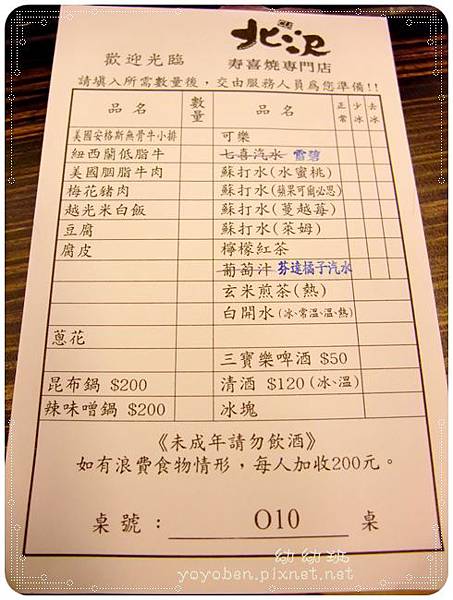 北澤
歡迎光臨 寿喜燒專門店
請填入所需數量後，交由服務人員為您準備!!
品名 數量 品名 正常 少冰 去冰
美國安格斯無骨牛小排 可樂
紐西蘭低脂牛 七喜汽水 雪碧
美國胭脂牛肉 蘇打水(水蜜桃)
梅花豬肉 蘇打水(蘋果可爾必思)
越光米白飯 蘇打水(蔓越莓)
豆腐 蘇打水(萊姆)
腐皮 檸檬紅茶
葡萄汁 芬達橘子汽水
玄米煎茶(熱)
白開水(冰、常溫、溫、熱)
蔥花
三寶樂啤酒 $50
昆布鍋 $200 清酒 $120(冰、溫)
辣味噌鍋 $200 冰塊
《未成年請勿飲酒》
如有浪費食物情形，每人加收200元。
桌號： O10 桌
幼幼班
yoyoben.pixnet.net